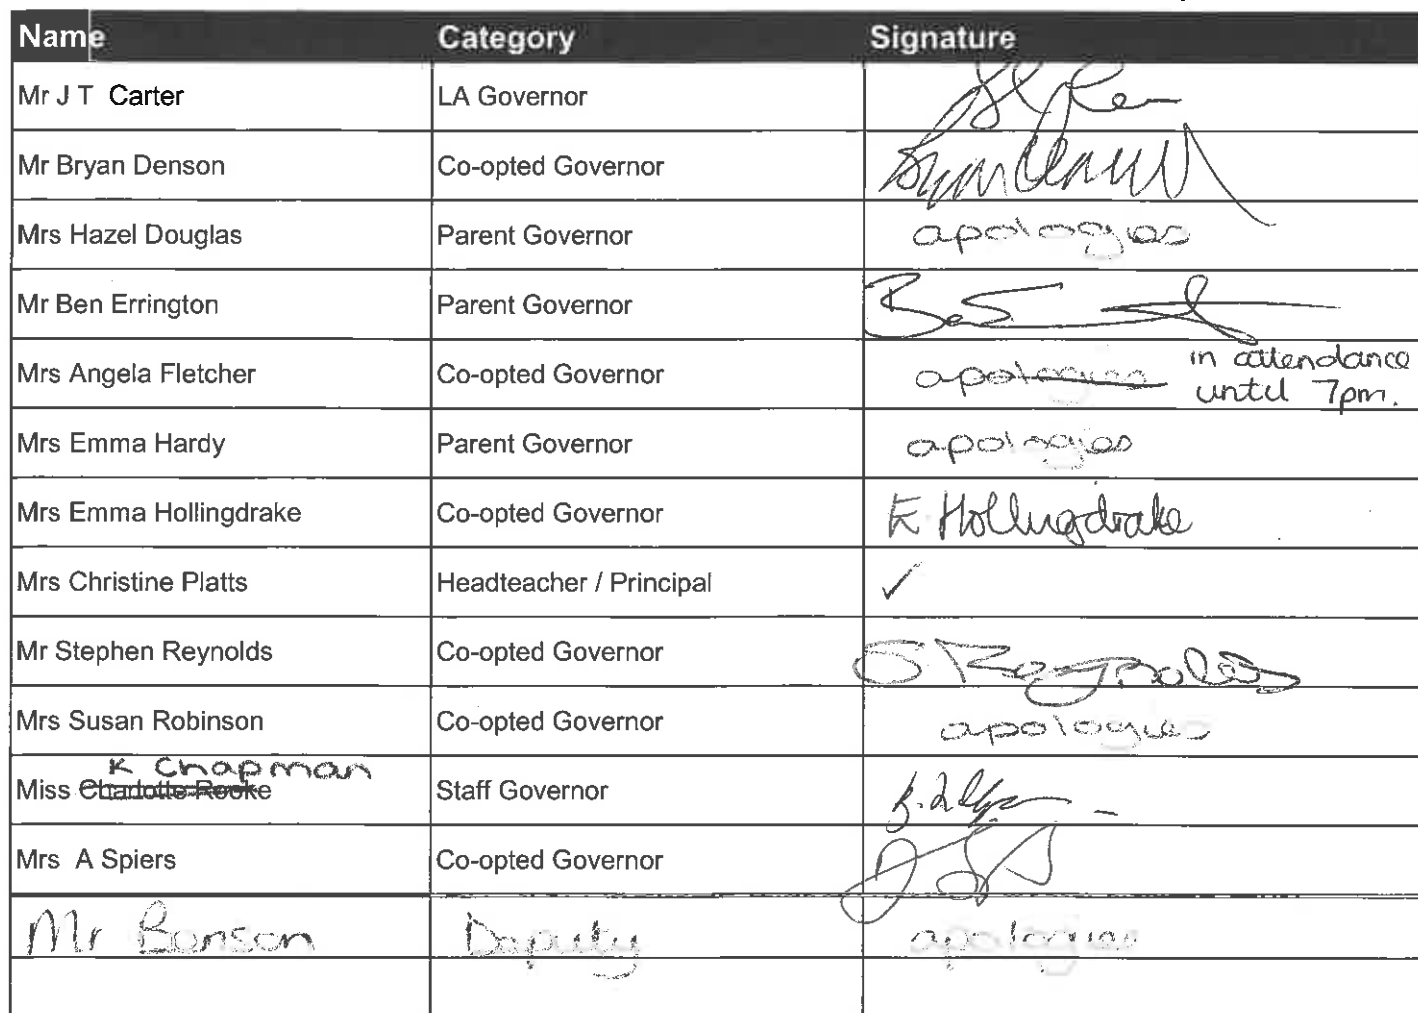 Name Category Signature
Mr J T Carter LA Governor
Mr Bryan Denson Co-opted Governor
Mrs Hazel Douglas Parent Governor apologies
Mr Ben Errington Parent Governor
Mrs Angela Fletcher Co-opted Governor apologies in attendance
until 7pm.
Mrs Emma Hardy Parent Governor apologies
Mrs Emma Hollingdrake Co-opted Governor E. Hollingdrake
Mrs Christine Platts Headteacher / Principal ✓
Mr Stephen Reynolds Co-opted Governor S Reynolds
Mrs Susan Robinson Co-opted Governor apologies
K Chapman
Miss Charlotte Rooke Staff Governor
Mrs A Spiers Co-opted Governor
Mr Bonson Deputy apologies